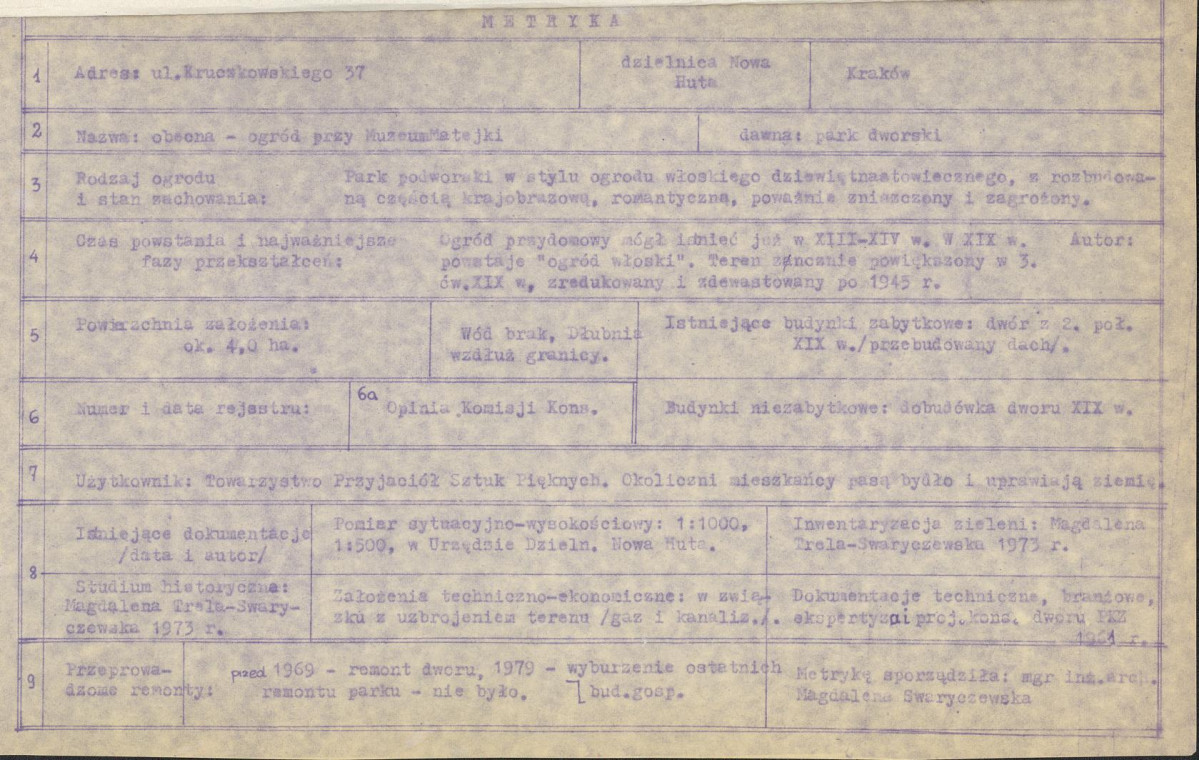 METRYKA
1 Adres: ul.Kruczkowskiego 37
dzielnica Nowa
Huta
Kraków
2 Nazwa: obecna - ogród przy MuzeumMatejki
dawna: park dworski
3 Rodzaj ogrodu
i stan zachowania:
Park podworski w stylu ogrodu włoskiego dziewiętnastowiecznego, z rozbudowa-
ną częścią krajobrazową, romantyczna, poważnie zniszczony i zagrożony.
4 Czas powstania i najważniejsze
fazy przekształceń:
Ogród przydomowy mógł istnieć już w XIII-XIV w. W XIX w.
powstaje "ogród włoski". Teren znacznie powiększony w 3.
ćw.XIX w, zredukowany i zdewastowany po 1945 r.
Autor:
5 Powierzchnia założenia:
ok. 4,0 ha.
Wód brak, Dłubnia
wzdłuż granicy.
Istniejące budynki zabytkowe: dwór z 2. poł.
XIX w./przebudowany dach/.
6 Numer i data rejestru:
6a Opinia Komisji Kons.
Budynki niezabytkowe: dobudówka dworu XIX w.
7 Użytkownik: Towarzystwo Przyjaciół Sztuk Pięknych. Okoliczni mieszkańcy pasą bydło i uprawiają ziemię.
8 Istniejące dokumentacje
/data i autor/
Pomiar sytuacyjno-wysokościowy: 1:1000,
1:500, w Urzędzie Dzieln. Nowa Huta.
Inwentaryzacja zieleni: Magdalena
Trela-Swaryczewska 1973 r.
Studium historyczne:
Magdalena Trela-Swary-
czewska 1973 r.
Założenia techniczno-ekonomiczne: w zwią-
zku z uzbrojeniem terenu /gaz i kanaliz./.
Dokumentacje techniczne, branżowe,
ekspertyza i proj.kons. dworu PKZ
r.
9 Przeprowa-
dzome remonty:
przed 1969 - remont dworu, 1979 - wyburzenie ostatnich
remontu parku - nie było. bud.gosp.
Metrykę sporządziła: mgr inż.arch.
Magdalena Swaryczewska